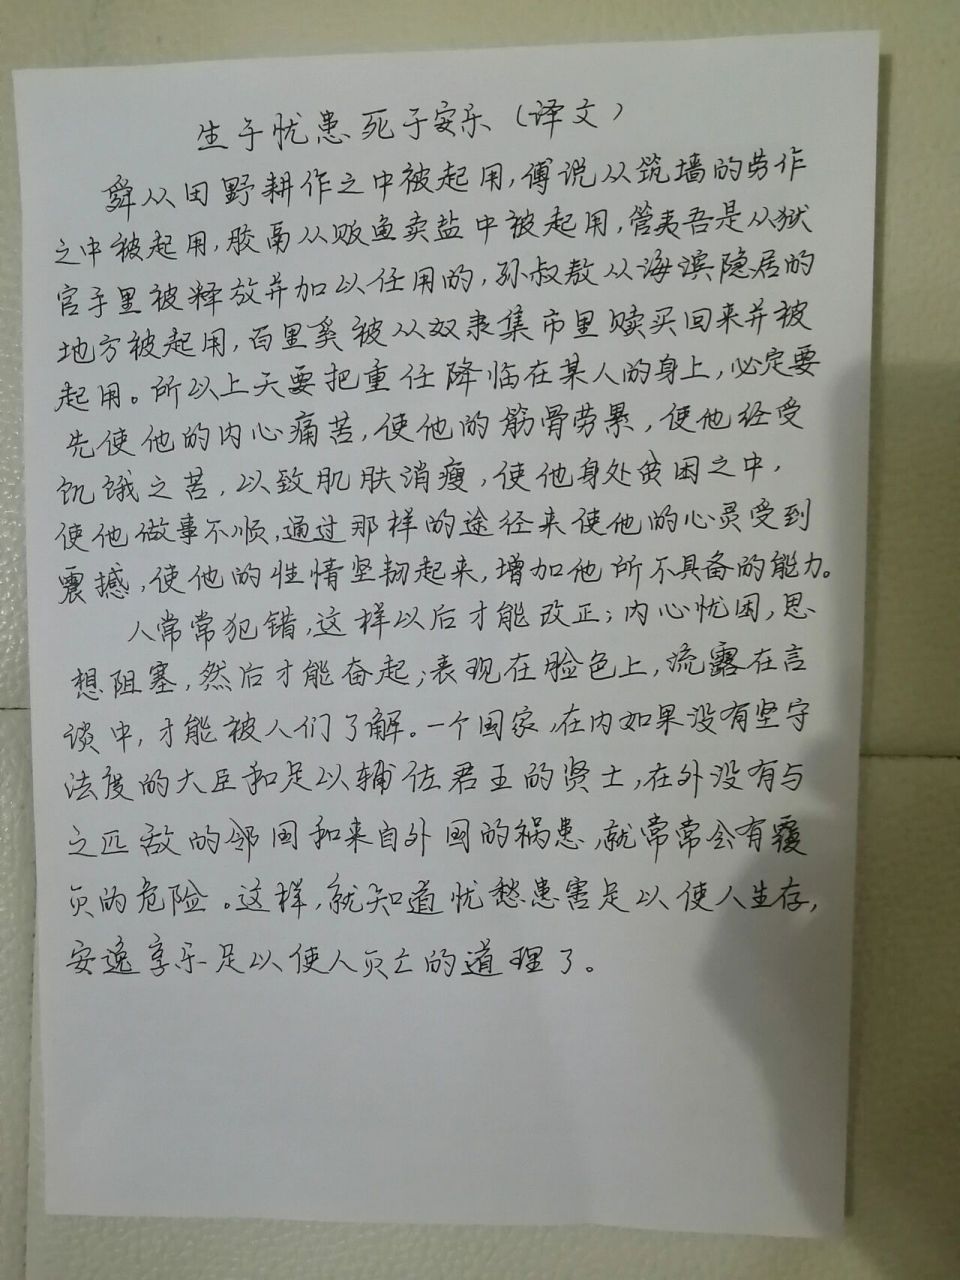 生于忧患死于安乐（译文）
舜从田野耕作之中被起用，傅说从筑墙的劳作
之中被起用，胶鬲从贩鱼卖盐中被起用，管夷吾是从狱
官手里被释放并加以任用的，孙叔敖从海滨隐居的
地方被起用，百里奚被从奴隶集市里赎买回来并被
起用。所以上天要把重任降临在某人的身上，必定要
先使他的内心痛苦，使他的筋骨劳累，使他经受
饥饿之苦，以致肌肤消瘦，使他身处贫困之中，
使他做事不顺，通过那样的途径来使他的心灵受到
震撼，使他的性情坚韧起来，增加他所不具备的能力。
人常常犯错，这样以后才能改正；内心忧困，思
想阻塞，然后才能奋起；表现在脸色上，流露在言
谈中，才能被人们了解。一个国家，在内如果没有坚守
法度的大臣和足以辅佐君王的贤士，在外没有与
之匹敌的邻国和来自外国的祸患，就常常会有覆
灭的危险。这样，就知道忧愁患害足以使人生存，
安逸享乐足以使人灭亡的道理了。